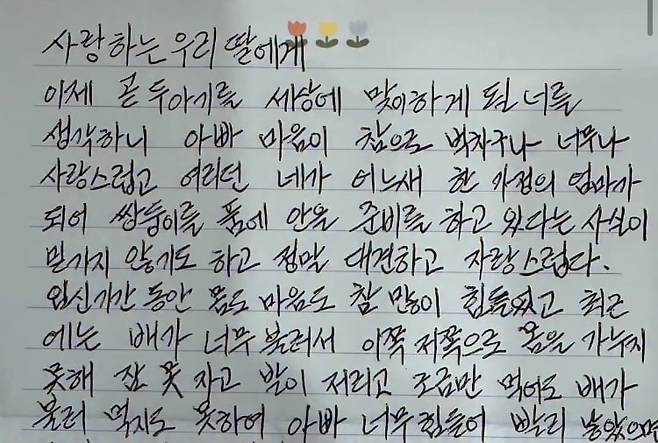 사랑하는 우리 딸에게
이제 곧 두아기를 세상에 맞이하게 된 너를
생각하니 아빠 마음이 참으로 벅차구나 너무나
사랑스럽고 여리던 네가 어느새 한 가정의 엄마가
되어 쌍둥이를 품에 안을 준비를 하고 있다는 사실이
믿가지 않기도 하고 정말 대견하고 자랑스럽다.
임신기간 동안 몸도 마음도 참 많이 힘들었고 최근
에는 배가 너무 불러서 이쪽 저쪽으로 몸을 가누지
못해 잠 못 자고 발이 저리고 조금만 먹어도 배가
불러 먹지도 못하여 아빠 너무 힘들어 빨리 낳았으면